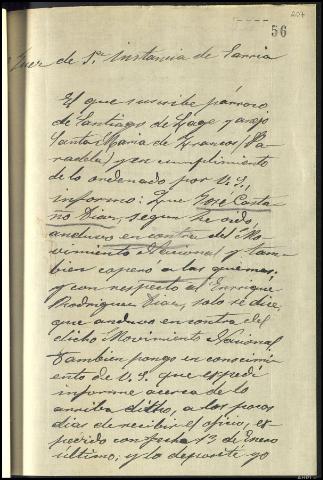 204
56
Juez de 1ª instancia de Sarria
El que suscribe párroco
de Santiago de Lage y anejo
Santa María de Francos (Pa-
radela) y en cumplimiento
de lo ordenado por V.S.,
informo: Que José Casta-
no Diaz, segun he oido,
anduvo en contra del Mo-
vimiento Nacional y tam-
bien copero a las quemas;
y con respecto al Enrique
Rodriguez Diaz, solo sé dice,
que anduvo en contra del
dicho Movimiento Nacional.
Tambien pongo en conocimi-
ento de V.S. que expedí
informe acerca de lo
arriba dicho, a los pocos
dias de recibir el oficio, ex-
pedido con fecha 13 de Enero
último; y lo deposité yo